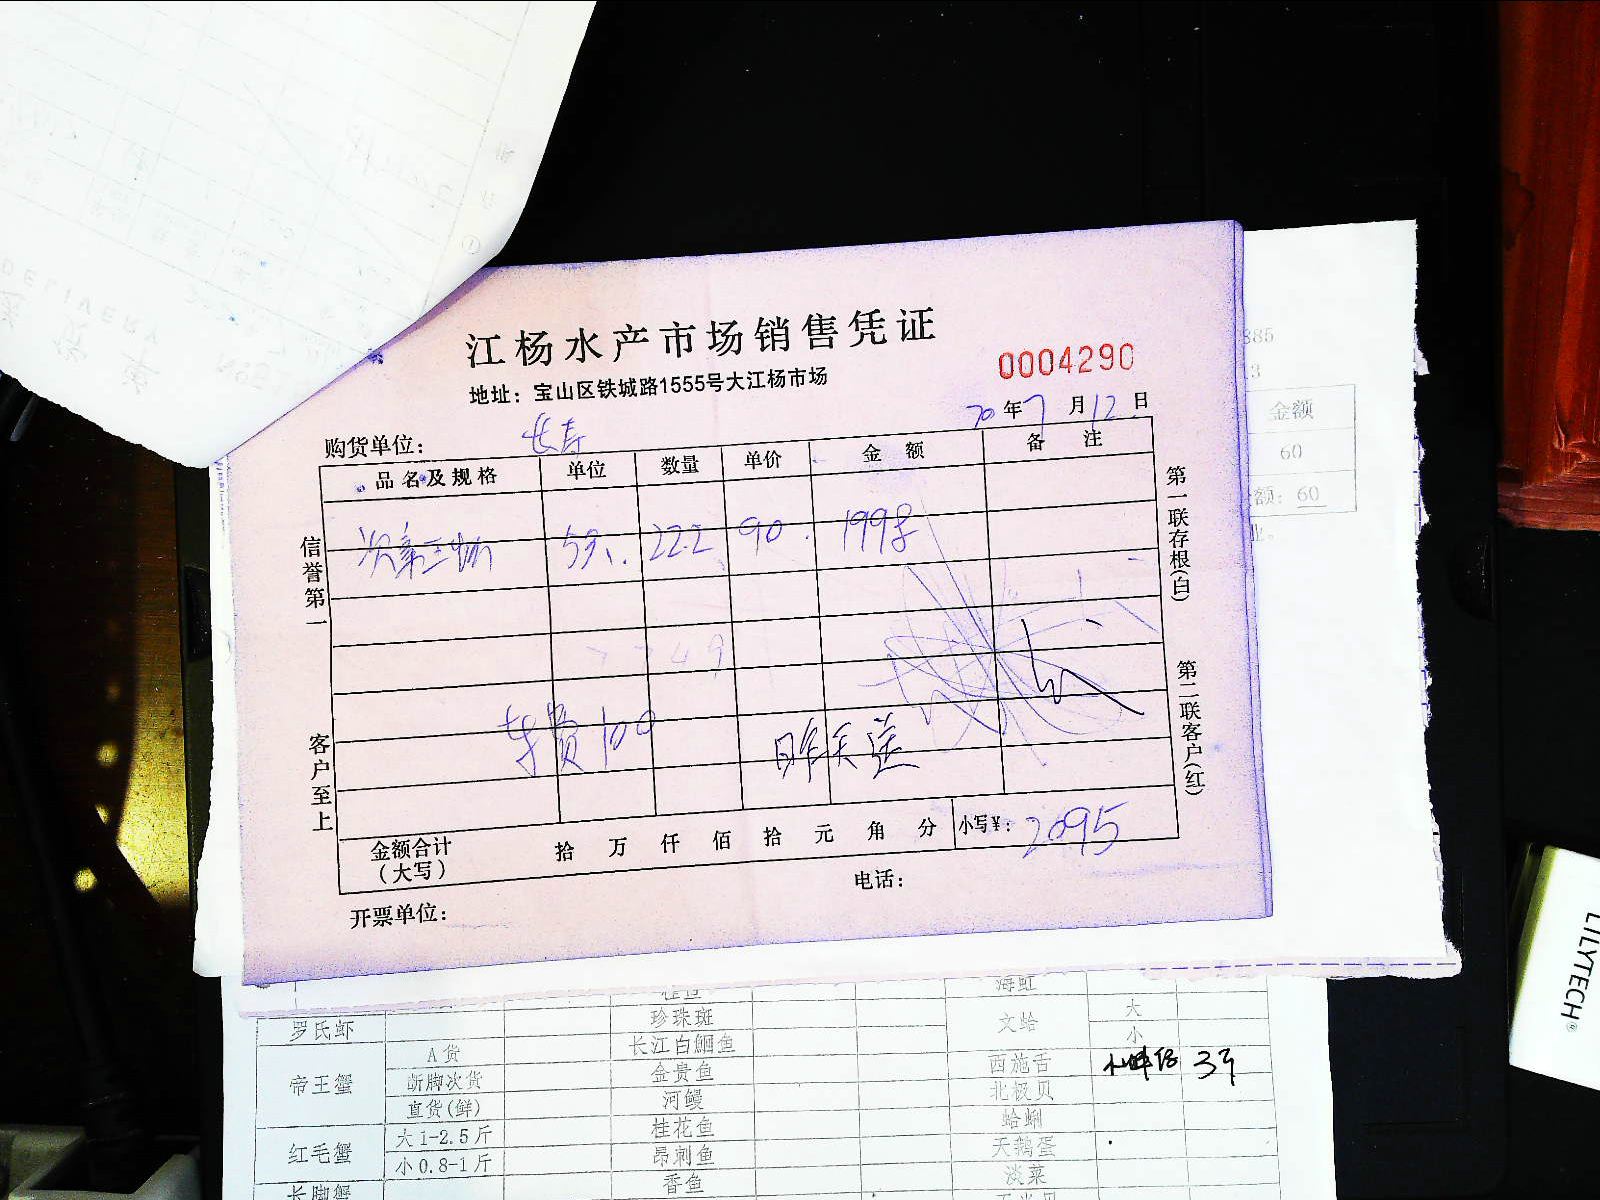 江杨水产市场销售凭证
地址：宝山区铁城路1555号大江杨市场
0004290
20年7月12日
购货单位：长寿
品名及规格 单位 数量 单价 金额 备注
5只 22.2 90 1998
车费100
昨天送
金额合计（大写） 拾 万 仟 佰 拾 元 角 分 小写¥：2095
电话：
开票单位：
信誉第一
客户至上
第一联存根(白)
第二联客户(红)
385
3
金额
60
额：60
业。
海虹
罗氏虾 珍珠斑 文蛤 大
小
A货 长江白鮰鱼
帝王蟹 斩脚次货 金贵鱼 西施舌 3斤
直货(鲜) 河鳗 北极贝
红毛蟹 大1-2.5斤 桂花鱼 蛤蜊
小0.8-1斤 昂刺鱼 天鹅蛋
长脚蟹 香鱼 淡菜
LILYTECH
DELIVERY